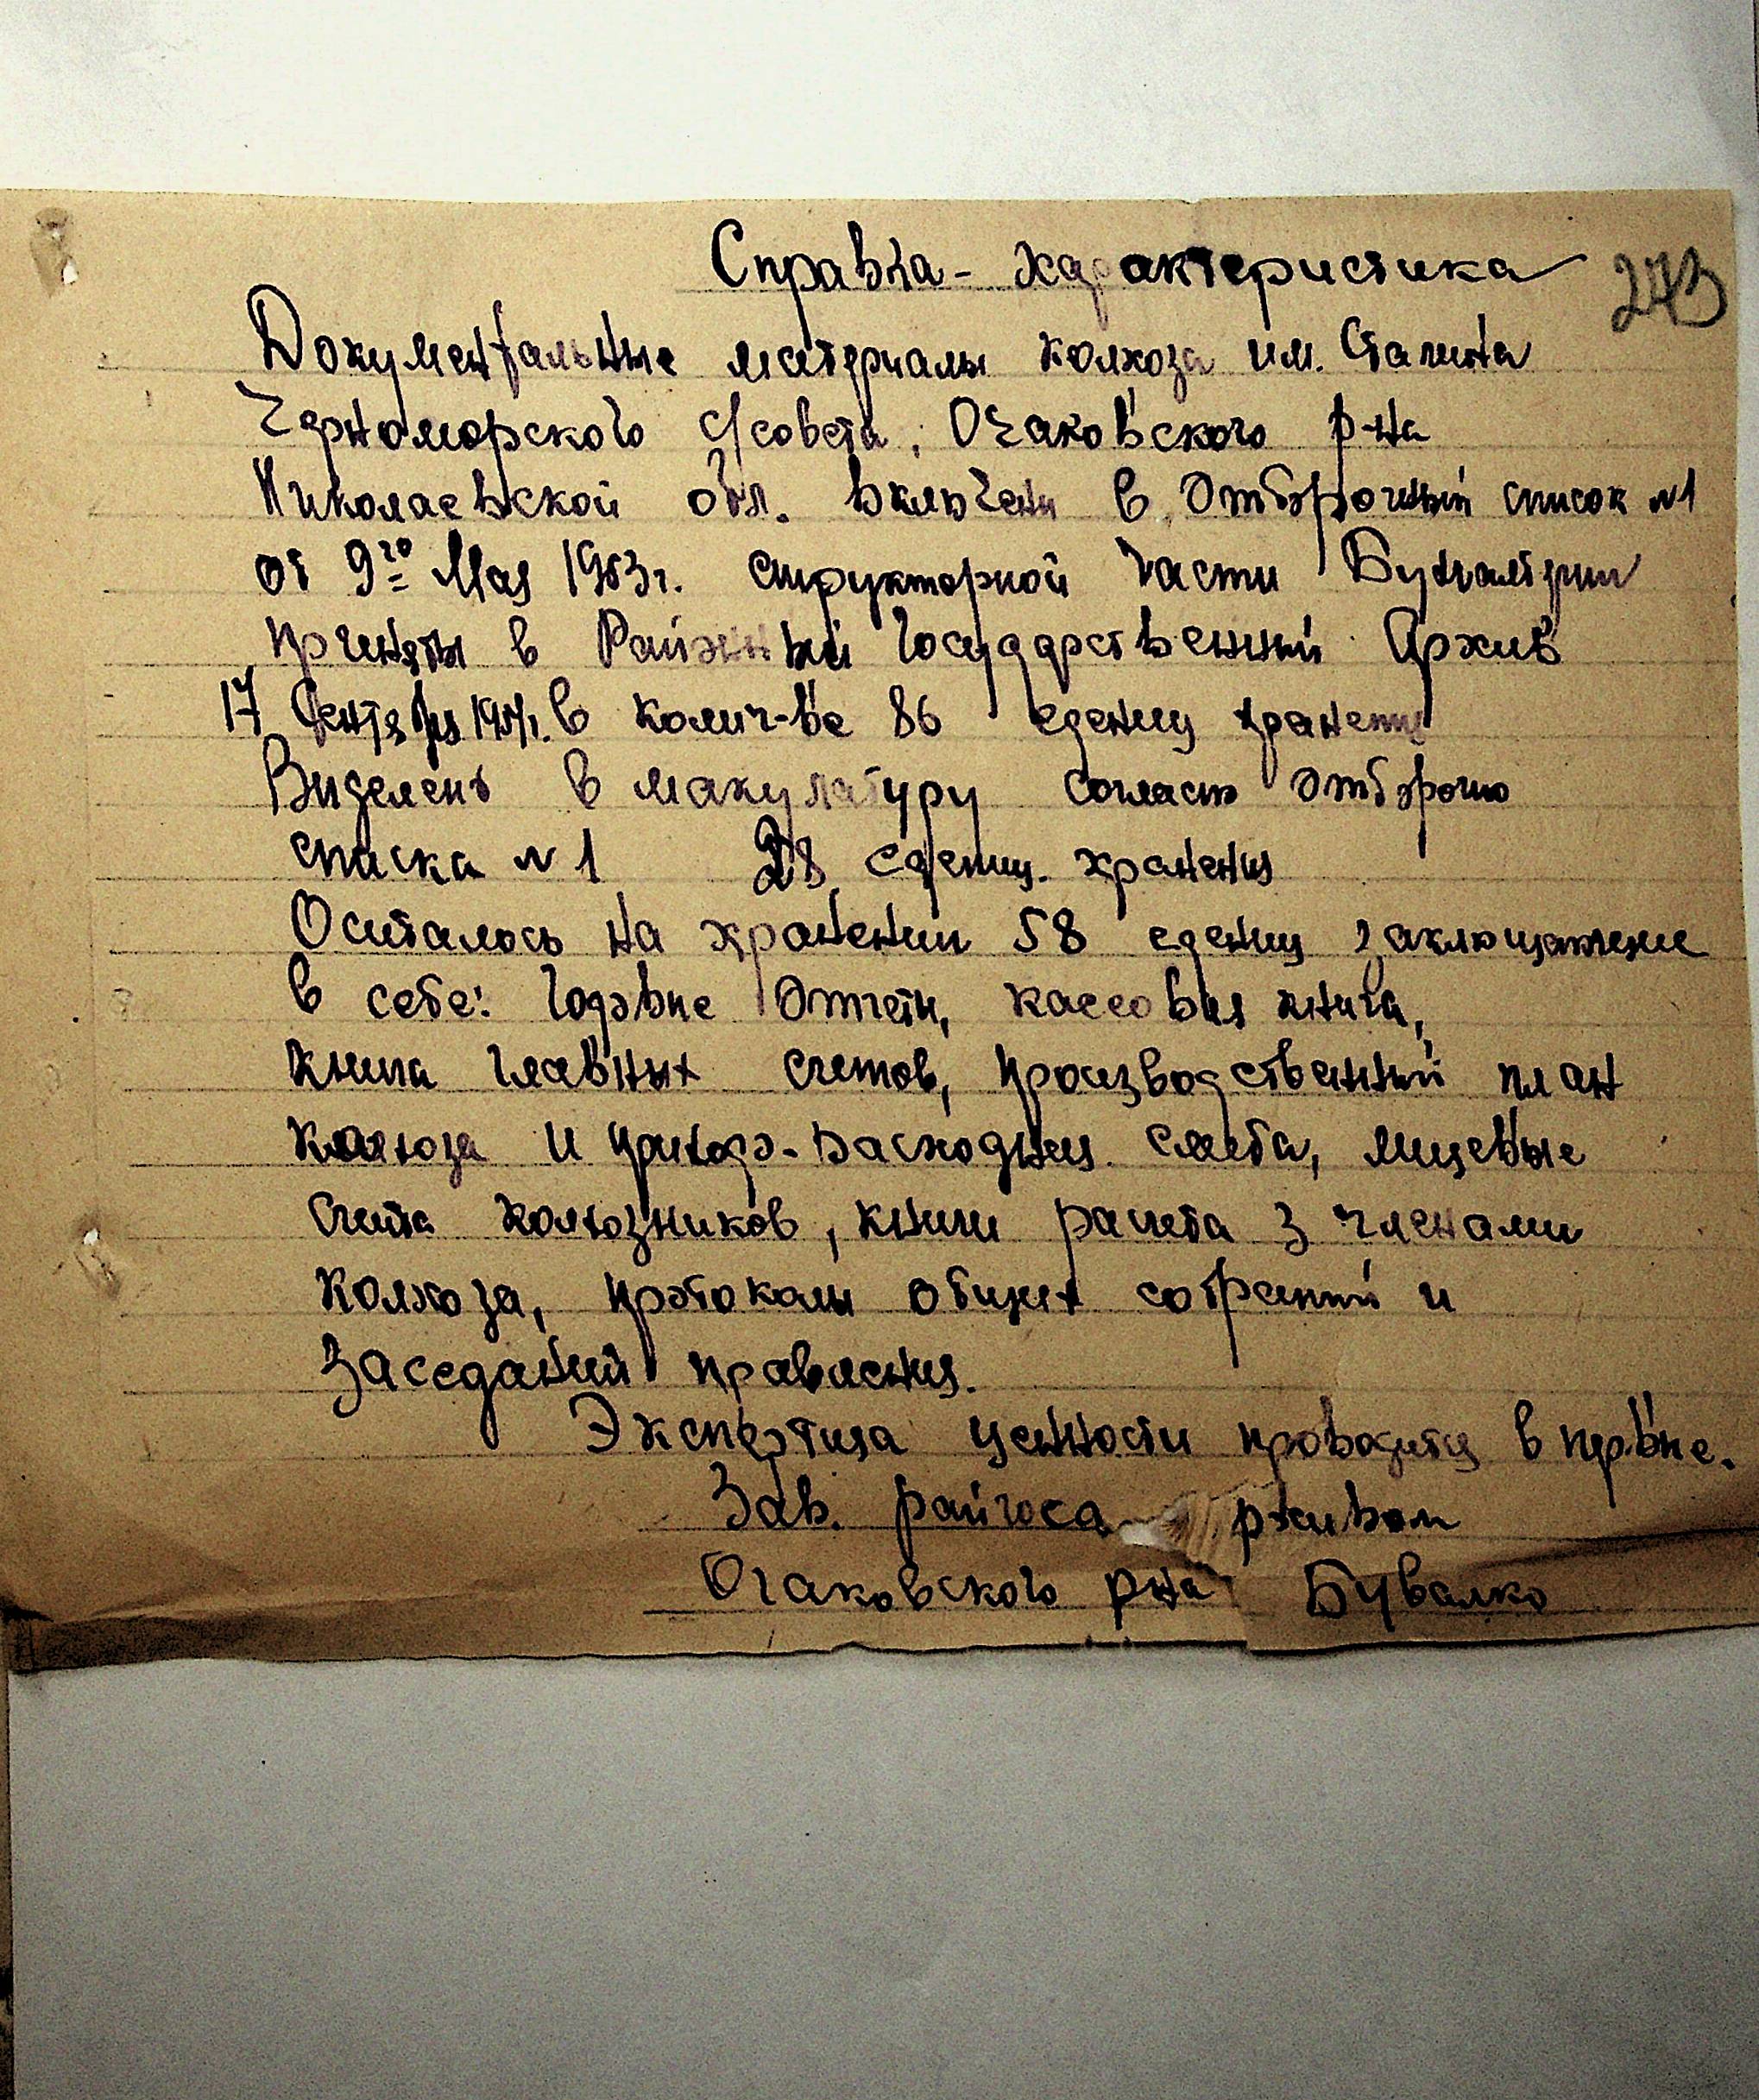 Справка - характеристика 273
Документальные материалы колхоза им. Сталина
Черноморского с/совета, Очаковского р-на
Николаевской обл. включени в Отборочный список №1
от 9го Мая 1953г. структорной части Бухгалтрии
приняты в Районный Государственний Архив
17 Сентября в колич-ве 86 едениц хранения
Виделено в макулатуру согласно отборочно
списка №1 28 едениц. хранения
Осталось на хранении 58 едениц заключающие
в себе: Годовие Отчети, кассовая книга,
книга главных счетов, производственный план
колхоза и приходо-расходная смета, лицевые
счета колхозников, книги расчета з членами
колхоза, протоколы общих собраний и
заседаний правления.
Экспертиза ценности проводится в пер-вие.
Зав. райгоса рхивом
Очаковского рна Бувалко